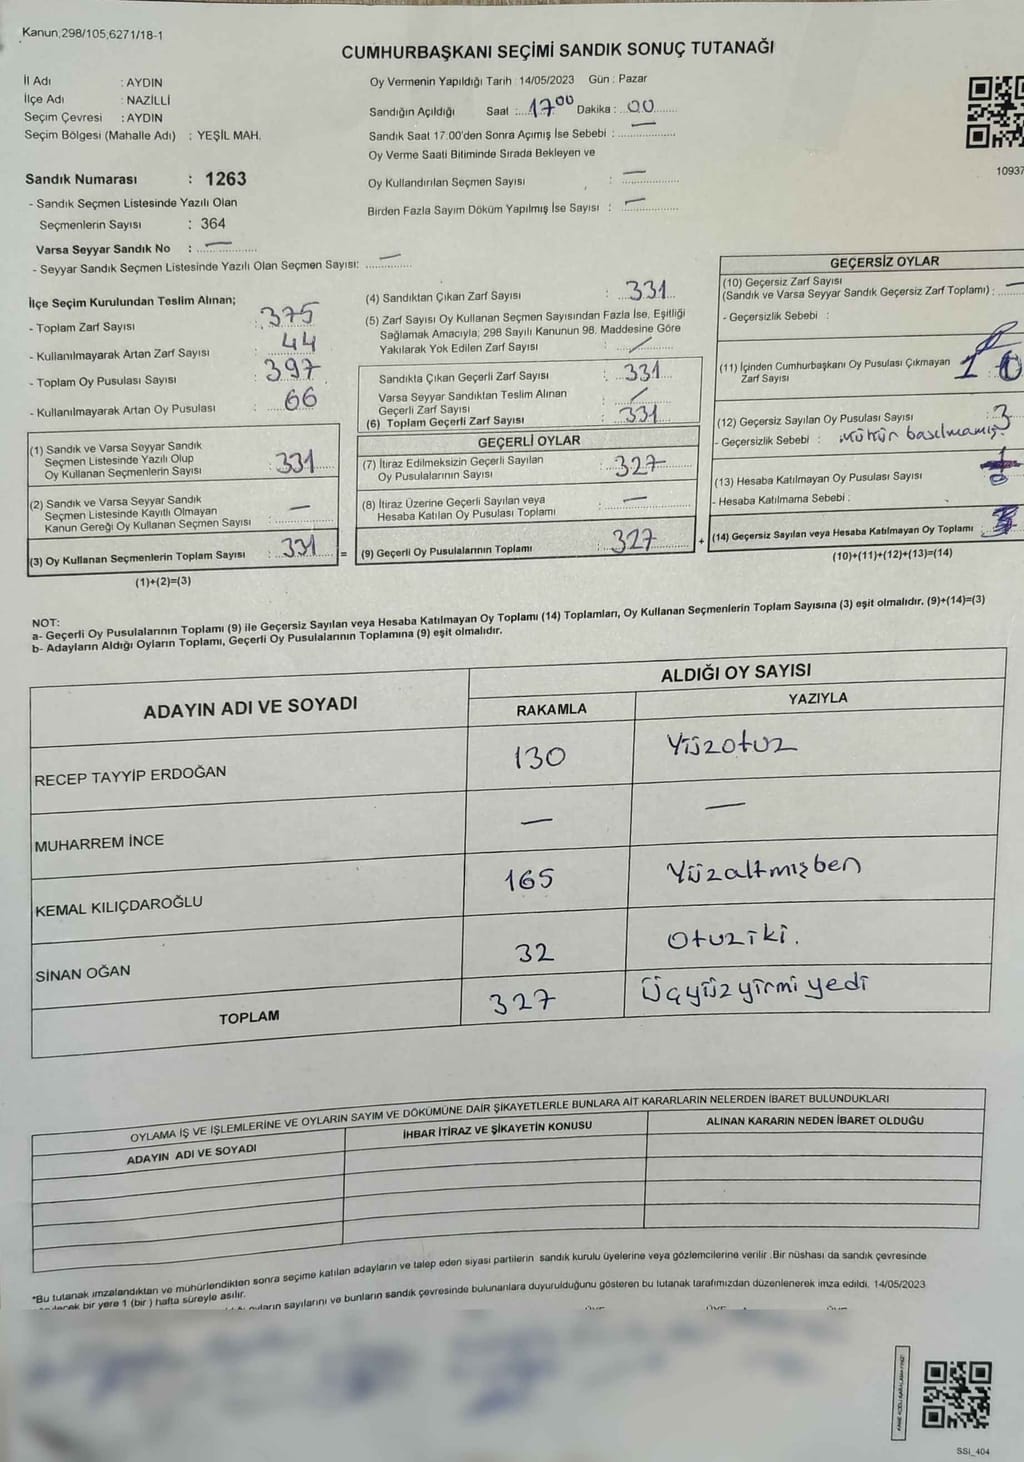 Kanun,298/105,6271/18-1
CUMHURBAŞKANI SEÇİMİ SANDIK SONUÇ TUTANAĞI
İl Adı : AYDIN
İlçe Adı : NAZİLLİ
Seçim Çevresi : AYDIN
Seçim Bölgesi (Mahalle Adı) : YEŞİL MAH.
Oy Vermenin Yapıldığı Tarih : 14/05/2023 Gün : Pazar
Sandığın Açıldığı Saat : 17 00 Dakika : 00
Sandık Saat 17:00'den Sonra Açımış İse Sebebi : —
Oy Verme Saati Bitiminde Sırada Bekleyen ve
Oy Kullandırılan Seçmen Sayısı : —
Birden Fazla Sayım Döküm Yapılmış İse Sayısı : —
10937
Sandık Numarası : 1263
- Sandık Seçmen Listesinde Yazılı Olan
Seçmenlerin Sayısı : 364
Varsa Seyyar Sandık No : —
- Seyyar Sandık Seçmen Listesinde Yazılı Olan Seçmen Sayısı: —
İlçe Seçim Kurulundan Teslim Alınan;
- Toplam Zarf Sayısı : 375
- Kullanılmayarak Artan Zarf Sayısı : 44
- Toplam Oy Pusulası Sayısı : 397
- Kullanılmayarak Artan Oy Pusulası : 66
(1) Sandık ve Varsa Seyyar Sandık
Seçmen Listesinde Yazılı Olup
Oy Kullanan Seçmenlerin Sayısı : 331
(2) Sandık ve Varsa Seyyar Sandık
Seçmen Listesinde Kayıtlı Olmayan
Kanun Gereği Oy Kullanan Seçmen Sayısı : —
(3) Oy Kullanan Seçmenlerin Toplam Sayısı : 331 =
(1)+(2)=(3)
(4) Sandıktan Çıkan Zarf Sayısı : 331
(5) Zarf Sayısı Oy Kullanan Seçmen Sayısından Fazla İse, Eşitliği
Sağlamak Amacıyla, 298 Sayılı Kanunun 98. Maddesine Göre
Yakılarak Yok Edilen Zarf Sayısı : /
Sandıkta Çıkan Geçerli Zarf Sayısı : 331
Varsa Seyyar Sandıktan Teslim Alınan
Geçerli Zarf Sayısı : /
(6) Toplam Geçerli Zarf Sayısı : 331
GEÇERLİ OYLAR
(7) İtiraz Edilmeksizin Geçerli Sayılan
Oy Pusulalarının Sayısı : 327
(8) İtiraz Üzerine Geçerli Sayılan veya
Hesaba Katılan Oy Pusulası Toplamı : —
(9) Geçerli Oy Pusulalarının Toplamı : 327 +
GEÇERSİZ OYLAR
(10) Geçersiz Zarf Sayısı
(Sandık ve Varsa Seyyar Sandık Geçersiz Zarf Toplamı) : —
- Geçersizlik Sebebi :
(11) İçinden Cumhurbaşkanı Oy Pusulası Çıkmayan
Zarf Sayısı
(12) Geçersiz Sayılan Oy Pusulası Sayısı : 3
- Geçersizlik Sebebi : Mühür basılmamış.
(13) Hesaba Katılmayan Oy Pusulası Sayısı
- Hesaba Katılmama Sebebi :
(14) Geçersiz Sayılan veya Hesaba Katılmayan Oy Toplamı
(10)+(11)+(12)+(13)=(14)
NOT:
a- Geçerli Oy Pusulalarının Toplamı (9) ile Geçersiz Sayılan veya Hesaba Katılmayan Oy Toplamı (14) Toplamları, Oy Kullanan Seçmenlerin Toplam Sayısına (3) eşit olmalıdır. (9)+(14)=(3)
b- Adayların Aldığı Oyların Toplamı, Geçerli Oy Pusulalarının Toplamına (9) eşit olmalıdır.
ADAYIN ADI VE SOYADI
ALDIĞI OY SAYISI
RAKAMLA YAZIYLA
RECEP TAYYİP ERDOĞAN 130 Yüzotuz
MUHARREM İNCE — —
KEMAL KILIÇDAROĞLU 165 Yüzaltmışben
SİNAN OĞAN 32 Otuziki.
TOPLAM 327 Üçyüzyirmiyedi
OYLAMA İŞ VE İŞLEMLERİNE VE OYLARIN SAYIM VE DÖKÜMÜNE DAİR ŞİKAYETLERLE BUNLARA AİT KARARLARIN NELERDEN İBARET BULUNDUKLARI
ADAYIN ADI VE SOYADI İHBAR İTİRAZ VE ŞİKAYETİN KONUSU ALINAN KARARIN NEDEN İBARET OLDUĞU
*Bu tutanak imzalandıktan ve mühürlendikten sonra seçime katılan adayların ve talep eden siyasi partilerin sandık kurulu üyelerine veya gözlemcilerine verilir .Bir nüshası da sandık çevresinde
bir yere 1 (bir ) hafta süreyle asılır.
oyların sayılarını ve bunların sandık çevresinde bulunanlara duyurulduğunu gösteren bu tutanak tarafımızdan düzenlenerek imza edildi. 14/05/2023
SSI_404